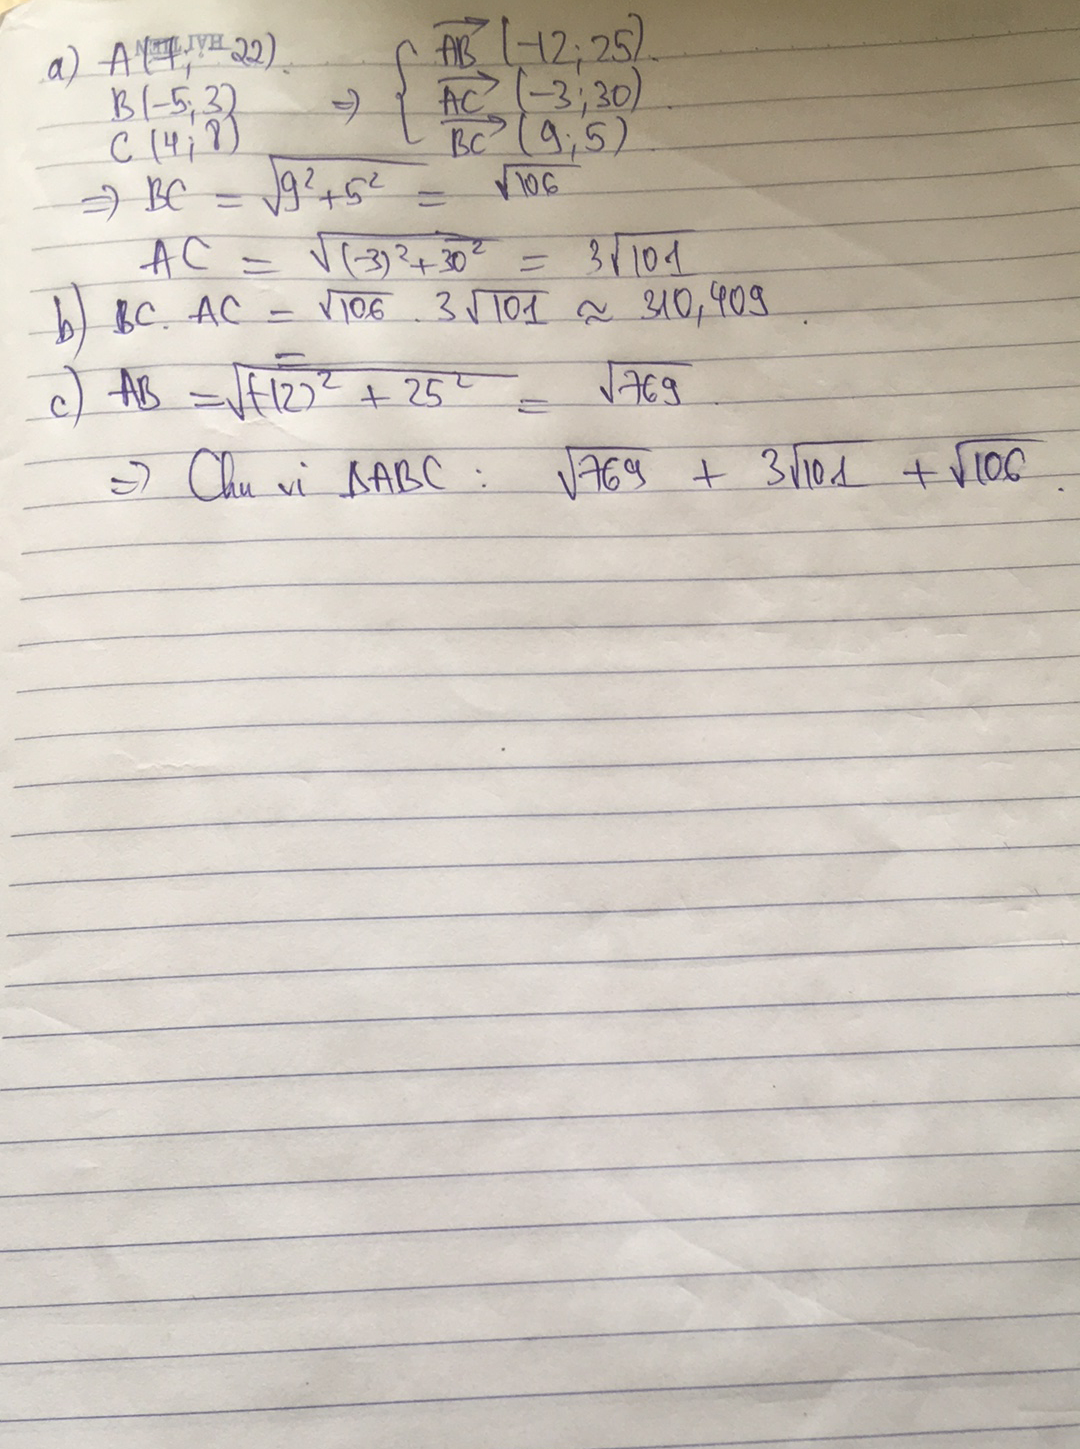 a) A(7; -22).
B(-5; 3)
C(4; 8)
⇒ { AB→ (-12; 25).
AC→ (-3; 30).
BC→ (9; 5).
⇒ BC = √(9² + 5²) = √106
AC = √((-3)² + 30²) = 3√101
b) BC. AC = √106 . 3√101 ≈ 310,409.
=
c) AB = √((-12)² + 25²) = √769.
⇒ Chu vi ΔABC : √769 + 3√101 + √106.